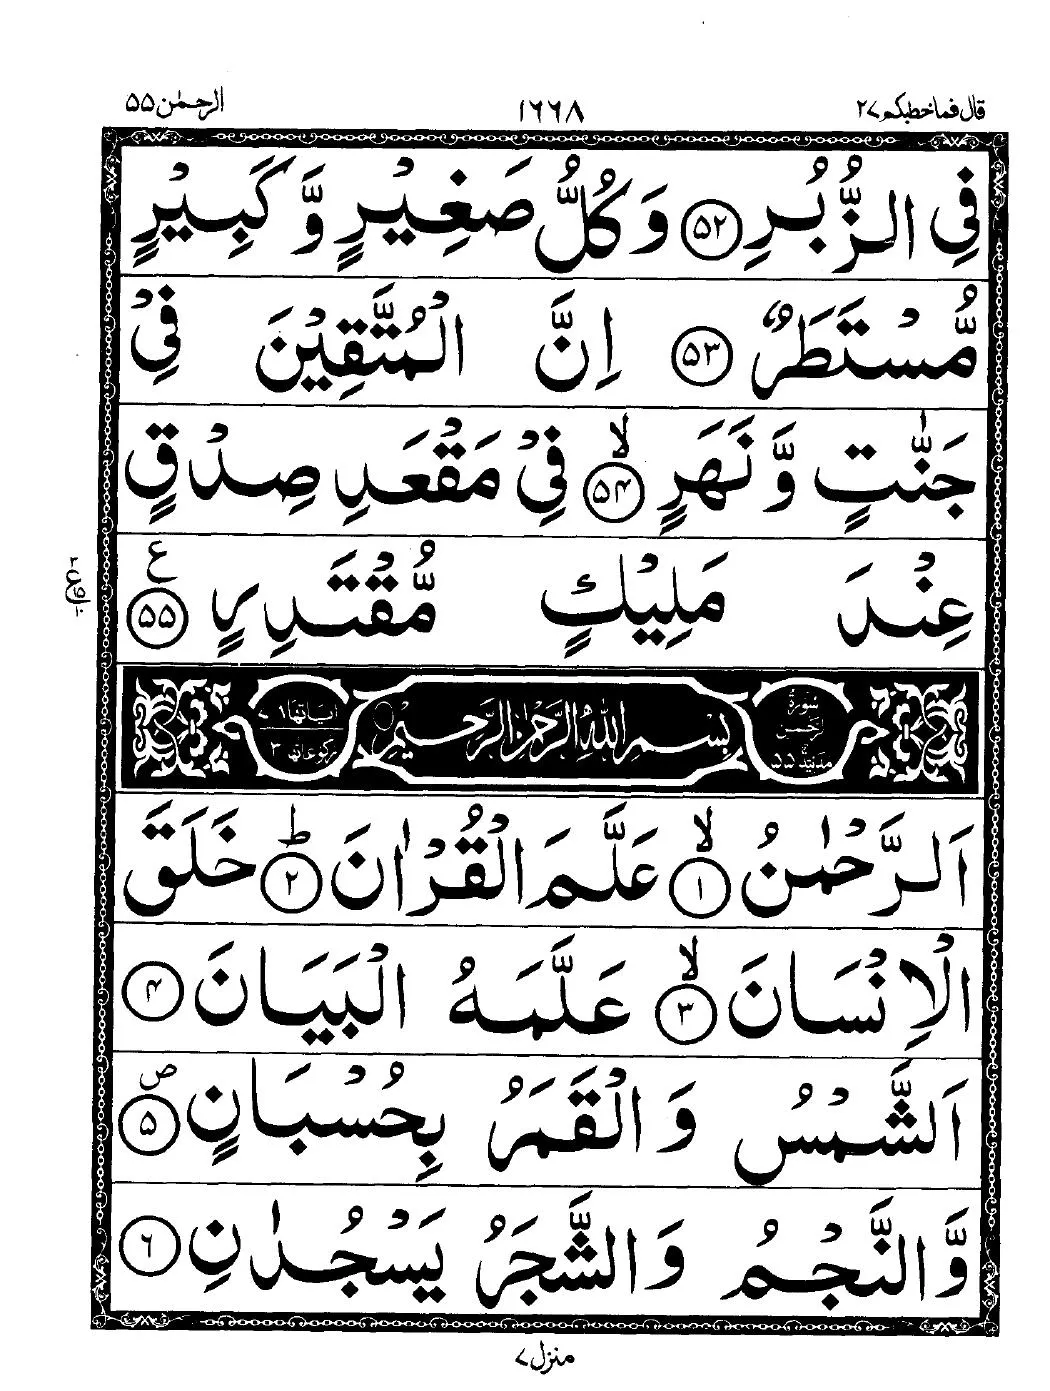 قال فماخطبكم ٢٧ ١٦٦٨ الرحمٰن ٥٥
فِى الزُّبُرِ ﴿۵۲﴾ وَ كُلُّ صَغِيْرٍ وَّ كَبِيْرٍ
مُّسْتَطَرٌ ﴿۵۳﴾ اِنَّ الْمُتَّقِيْنَ فِىْ
جَنّٰتٍ وَّ نَهَرٍ ۙ﴿۵۴﴾ فِىْ مَقْعَدِ صِدْقٍ
عِنْدَ مَلِيْكٍ مُّقْتَدِرٍ ﴿۵۵﴾ ع
سُوْرَةُ الرَّحْمٰنِ مَدَنِيَّة ۵۵ بِسْمِ اللّٰهِ الرَّحْمٰنِ الرَّحِيْمِ اٰيَاتُهَا ٧٨ رُكُوْعَاتُهَا ٣
اَلرَّحْمٰنُ ۙ﴿۱﴾ عَلَّمَ الْقُرْاٰنَ ؕ﴿۲﴾ خَلَقَ
الْاِنْسَانَ ۙ﴿۳﴾ عَلَّمَهُ الْبَيَانَ ﴿۴﴾
اَلشَّمْسُ وَ الْقَمَرُ بِحُسْبَانٍ ﴿۵﴾ ص
وَّ النَّجْمُ وَ الشَّجَرُ يَسْجُدٰنِ ﴿۶﴾
منزل ٧